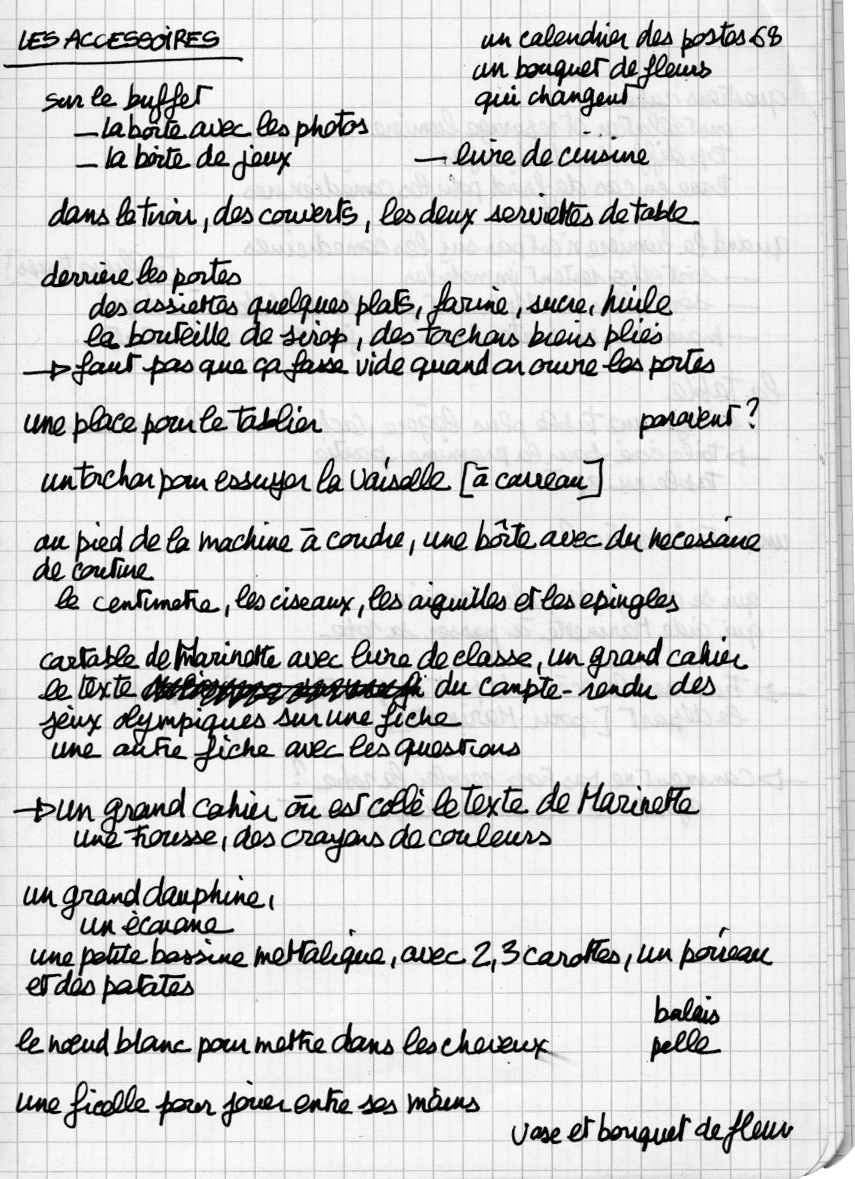 LES ACCESSOIRES
un calendrier des postes 68
un bouquet de fleurs
qui changent
sur le buffet
— la boîte avec les photos
— la boîte de jeux
— livre de cuisine
dans le tiroir, des couverts, les deux serviettes de table
derrière les portes
des assiettes quelques plats, farine, sucre, huile
la bouteille de sirop, des torchons biens pliés
→ faut pas que ça fasse vide quand on ouvre les portes
une place pour le tablier
paravent ?
un torchon pour essuyer la vaisselle [à carreau]
au pied de la machine à coudre, une boîte avec du necessaire
de couture
le centimetre, les ciseaux, les aiguilles et les epingles
cartable de Marinette avec livre de classe, un grand cahier
le texte du compte-rendu des
jeux olympiques sur une fiche
une autre fiche avec les questions
→ un grand cahier où est collé le texte de Marinette
une trousse, des crayons de couleurs
un grand dauphine,
un
une petite bassine mettalique, avec 2, 3 carottes, un poireau
et des patates
balais
le nœud blanc pour mettre dans les cheveux
pelle
une ficelle pour jouer entre ses mains
vase et bouquet de fleur